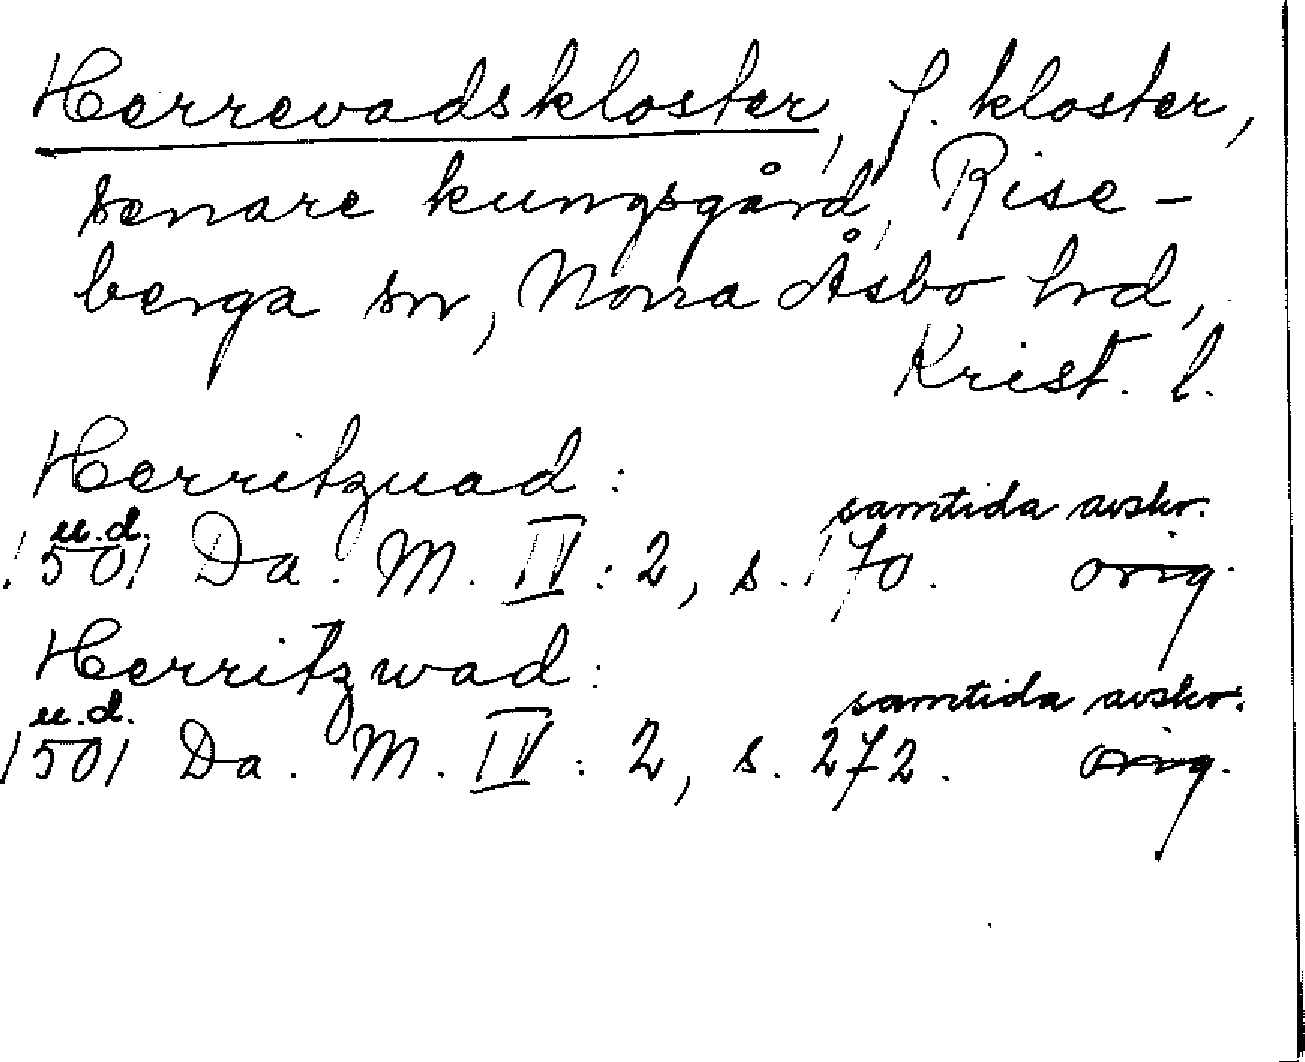 Herrevadskloster, f. kloster,
senare kungsgård, Rise-
berga sn, Norra Åsbo hrd,
Krist. l.
Herritzuad:
u.d. samtida avskr.
1501 Da. M. IV: 2, s. 170. orig.
Herritzwad:
u.d. samtida avskr.
1501 Da. M. IV: 2, s. 272. orig.